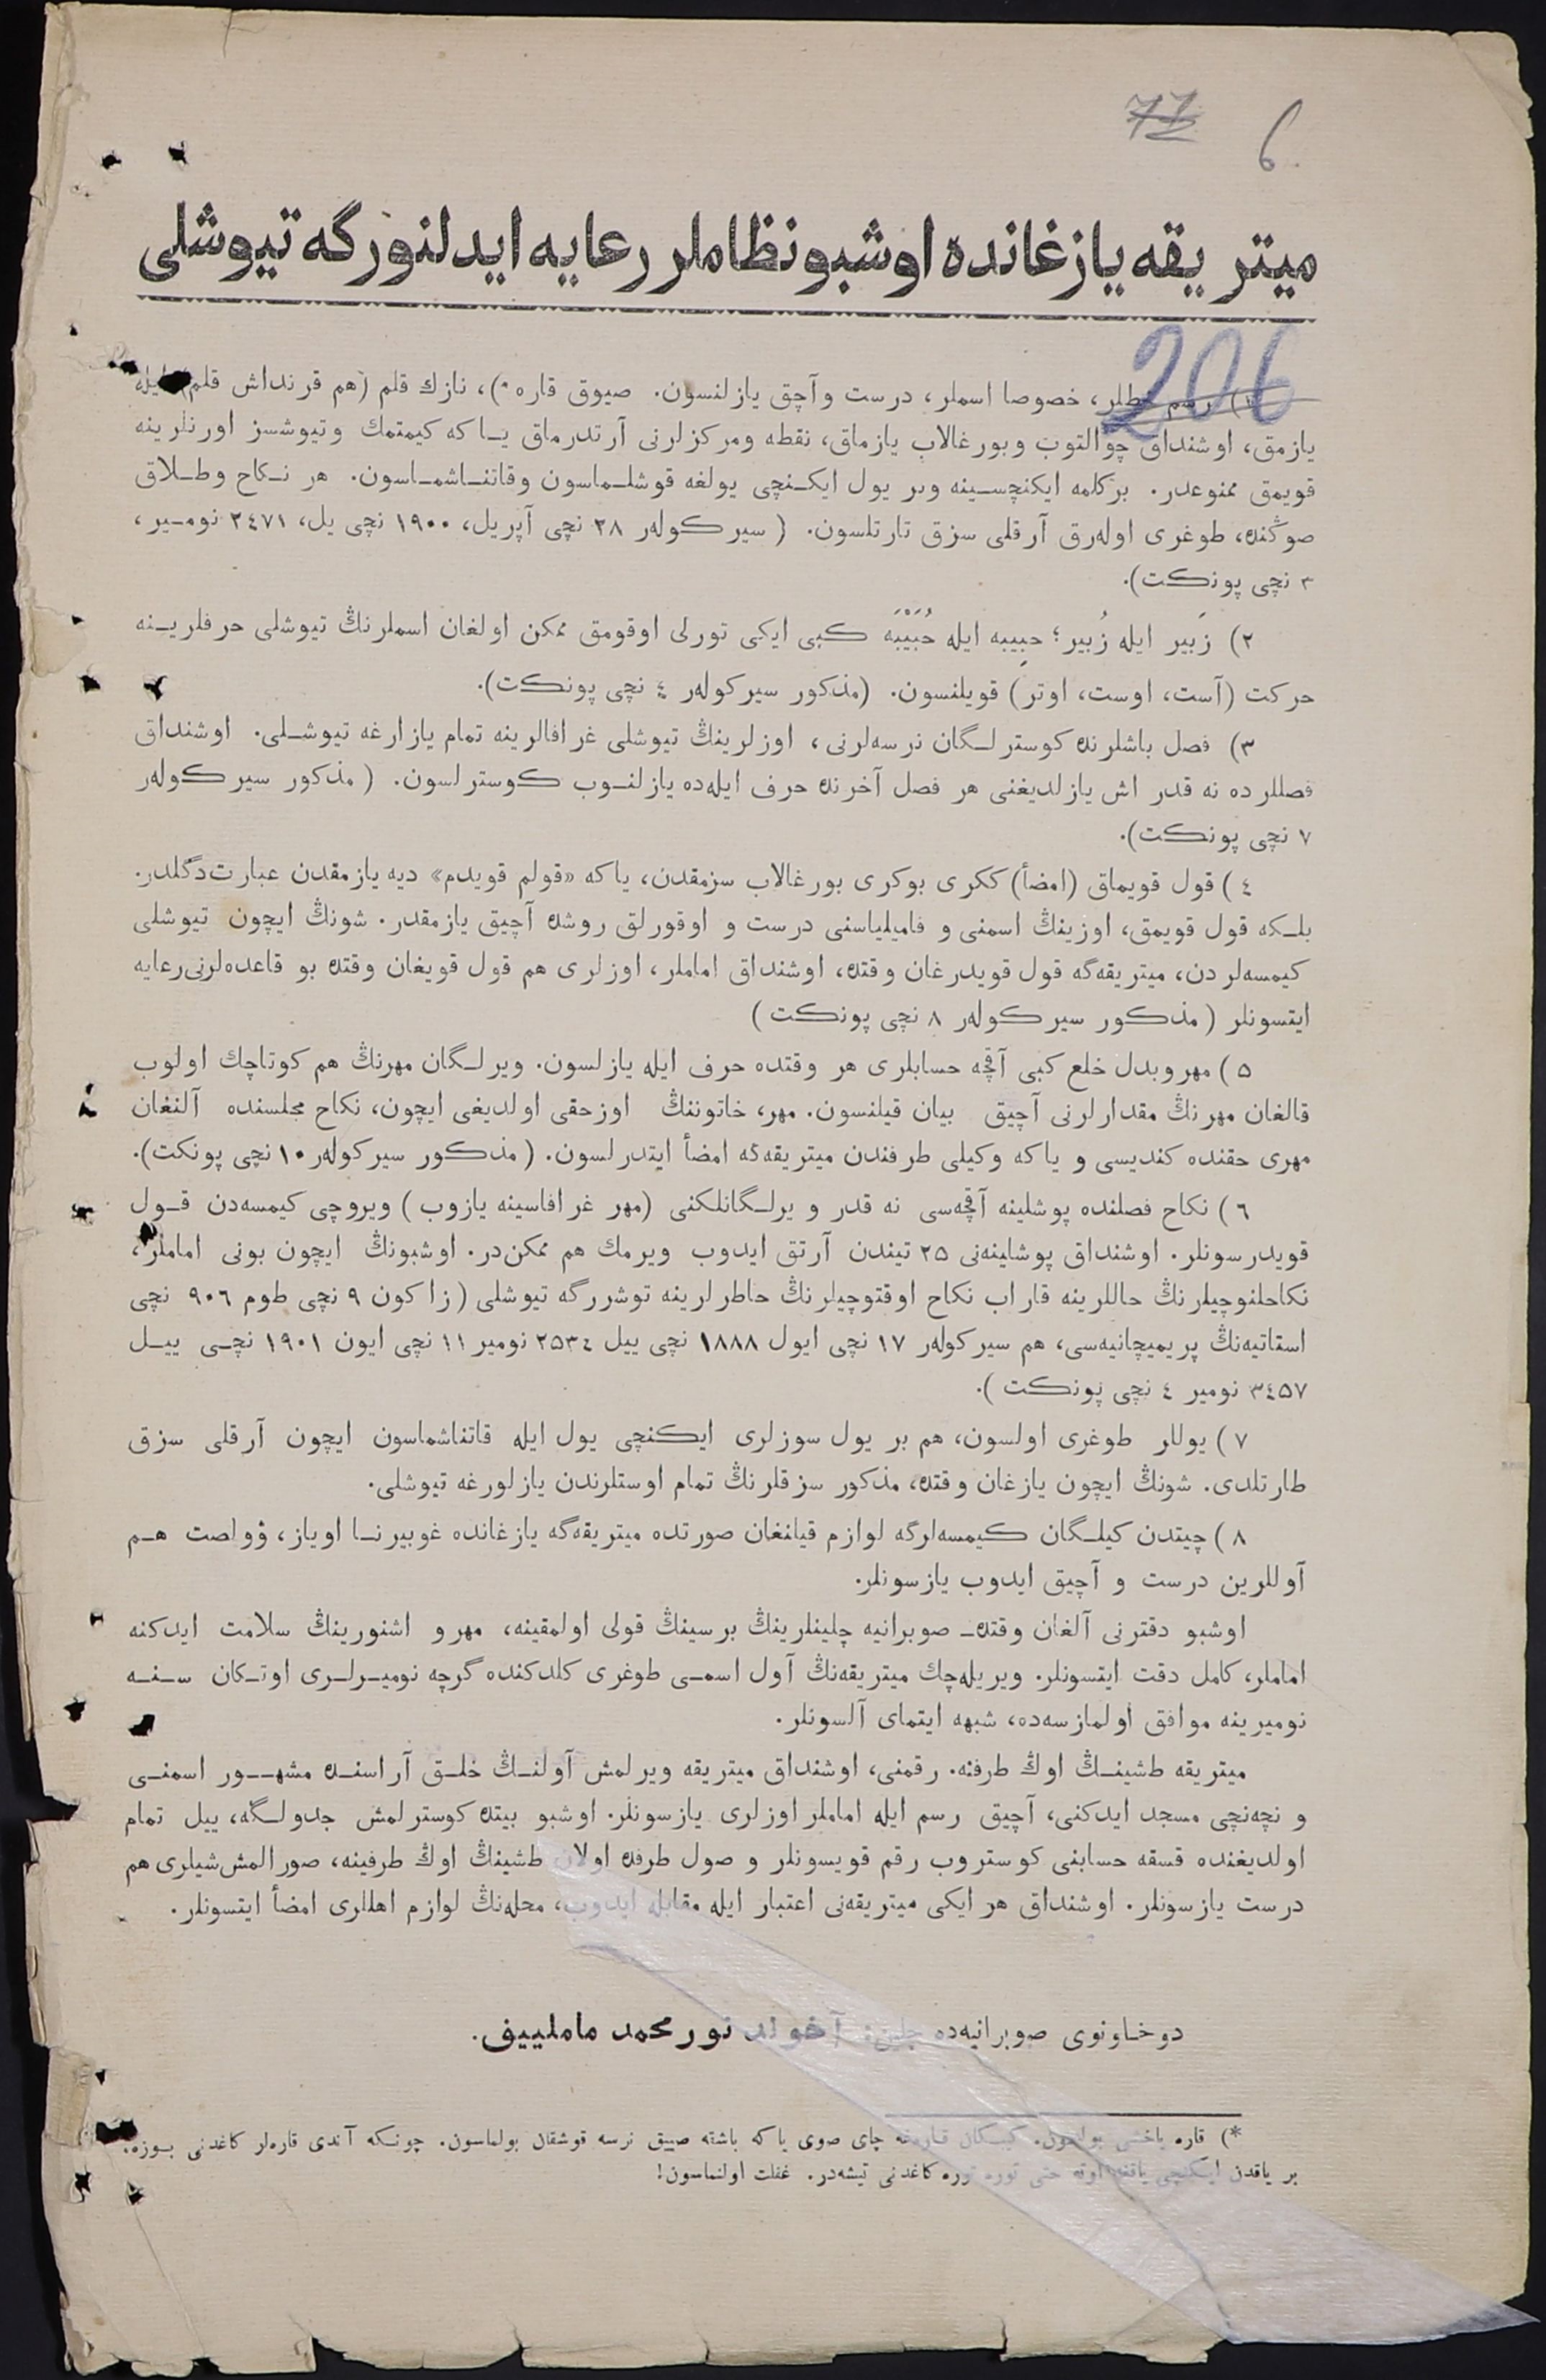 77 6
ميتريقه يازغانده اوشبو نظاملر رعايه ايدلنورگه تيوشلى
206
١) رسم خطلر، خصوصا اسملر، درست و آچق يازلنسون. صيوق قاره *)، نازك قلم (هم قرنداش قلم) ايله
يازمق، اوشنداق چوالتوب و بورغالاب يازماق، نقطه ومركزلرنى آرتدرماق ياكه كيمتمك وتيوشسز اورنلرينه
قويمق ممنوعدر. بر كلمه ايكنچسينه وبر يول ايكنچى يولغه قوشلماسون وقاتناشماسون. هر نكاح وطلاق
صوڭنده، طوغرى اولەرق آرقلى سزق تارتلسون. (سيركولەر ٢٨ نچى آپريل، ١٩٠٠ نچى يل، ٢٤٧١ نومير،
٣ نچى پونكت).
٢) زَبير ايله زُبير؛ حبِيبه ايله حُبَيْبَه كبى ايكى تورلى اوقومق ممكن اولغان اسملرنڭ تيوشلى حرفلرينه
حركت (آست، اوست، اوتر) قويلنسون. (مذكور سيركولەر ٤ نچى پونكت).
٣) فصل باشلرنده كوسترلگان نرسەلرنى، اوزلرينڭ تيوشلى غرافالرينه تمام يازارغه تيوشلى. اوشنداق
فصللرده نه قدر اش يازلديغنى هر فصل آخرنده حرف ايلەده يازلنوب كوسترلسون. (مذكور سيركولەر
٧ نچى پونكت).
٤) قول قويماق (امضأ) ككرى بوكرى بورغالاب سزمقدن، ياكه «قولم قويدم» ديه يازمقدن عبارت دگلدر.
بلكه قول قويمق، اوزينڭ اسمنى و فاميلياسنى درست و اوقورلق روشده آچيق يازمقدر. شونڭ ايچون تيوشلى
كيمسەلردن، ميتريقەگه قول قويدرغان وقتده، اوشنداق اماملر، اوزلرى هم قول قويغان وقتده بو قاعدەلرنى رعايه
ايتسونلر (مذكور سيركولەر ٨ نچى پونكت)
٥) مهر وبدل خلع كبى آقچه حسابلرى هر وقتده حرف ايله يازلسون. ويرلگان مهرنڭ هم كوتاچك اولوب
قالغان مهرنڭ مقدارلرنى آچيق بيان قيلنسون. مهر، خاتوننڭ اوز حقى اولديغى ايچون، نكاح مجلسنده آلنغان
مهرى حقنده كنديسى و ياكه وكيلى طرفندن ميتريقەگه امضأ ايتدرلسون. (مذكور سيركولەر ١٠ نچى پونكت).
٦) نكاح فصلنده پوشلينه آقچەسى نه قدر ويرلگانلكنى (مهر غرافاسينه يازوب) ويروچى كيمسەدن قول
قويدرسونلر. اوشنداق پوشلينەنى ٢٥ تيندن آرتق ايدوب ويرمك هم ممكن در. اوشبونڭ ايچون بونى اماملر،
نكاحلنوچيلرنڭ حاللرينه قاراب نكاح اوقتوچيلرنڭ خاطرلرينه توشررگه تيوشلى (زاكون ٩ نچى طوم ٩٠٦ نچى
استاتيەنڭ پريميچانيەسى، هم سيركولەر ١٧ نچى ايول ١٨٨٨ نچى ييل ٢٥٣٤ نومير ١١ نچى ايون ١٩٠١ نچى ييل
٣٤٥٧ نومير ٤ نچى پونكت).
٧) يوللر طوغرى اولسون، هم بر يول سوزلرى ايكنچى يول ايله قاتناشماسون ايچون آرقلى سزق
طارتلدى. شونڭ ايچون يازغان وقتده، مذكور سزقلرنڭ تمام اوستلرندن يازلورغه تيوشلى.
٨) چيتدن كيلگان كيمسەلرگه لوازم قيلنغان صورتده ميتريقەگه يازغانده غوبيرنا اوياز، ۋولصت هم
آوللرين درست و آچيق ايدوب يازسونلر.
اوشبو دفترنى آلغان وقتده صوبرانيه چلينلرينڭ برسينڭ قولى اولمقينه، مهر و اشنورينڭ سلامت ايدكنه
اماملر، كامل دقت ايتسونلر. ويريلەچك ميتريقەنڭ آول اسمى طوغرى كلدكنده گرچه نوميرلرى اوتكان سنه
نوميرينه موافق اولمازسەده، شبهه ايتماى آلسونلر.
ميتريقه طشينڭ اوڭ طرفنه. رقمنى، اوشنداق ميتريقه ويرلمش آولنڭ خلق آراسنده مشهور اسمنى
و نچەنچى مسجد ايدكنى، آچيق رسم ايله اماملر اوزلرى يازسونلر. اوشبو بيتده كوسترلمش جدولگه، ييل تمام
اولديغنده قسقه حسابنى كوستروب رقم قويسونلر و صول طرفده اولان طشينڭ اوڭ طرفينه، صورالمش شيلرى هم
درست يازسونلر. اوشنداق هر ايكى ميتريقەنى اعتبار ايله مقابله ايدوب، محلەنڭ لوازم اهللرى امضأ ايتسونلر.
دوخاونوى صوبرانيەده چلين: آخوند نورمحمد مامليييف.
*) قاره ياخشى بولسون. كبگان قارەغه چاى صوى ياكه باشقه صييق نرسه قوشقان بولماسون. چونكه آندى قارەلر كاغدنى بوزه،
بر ياقدن ايكنچى ياققه اوته حتى توره توره كاغدنى تيشەدر. غفلت اولنماسون!